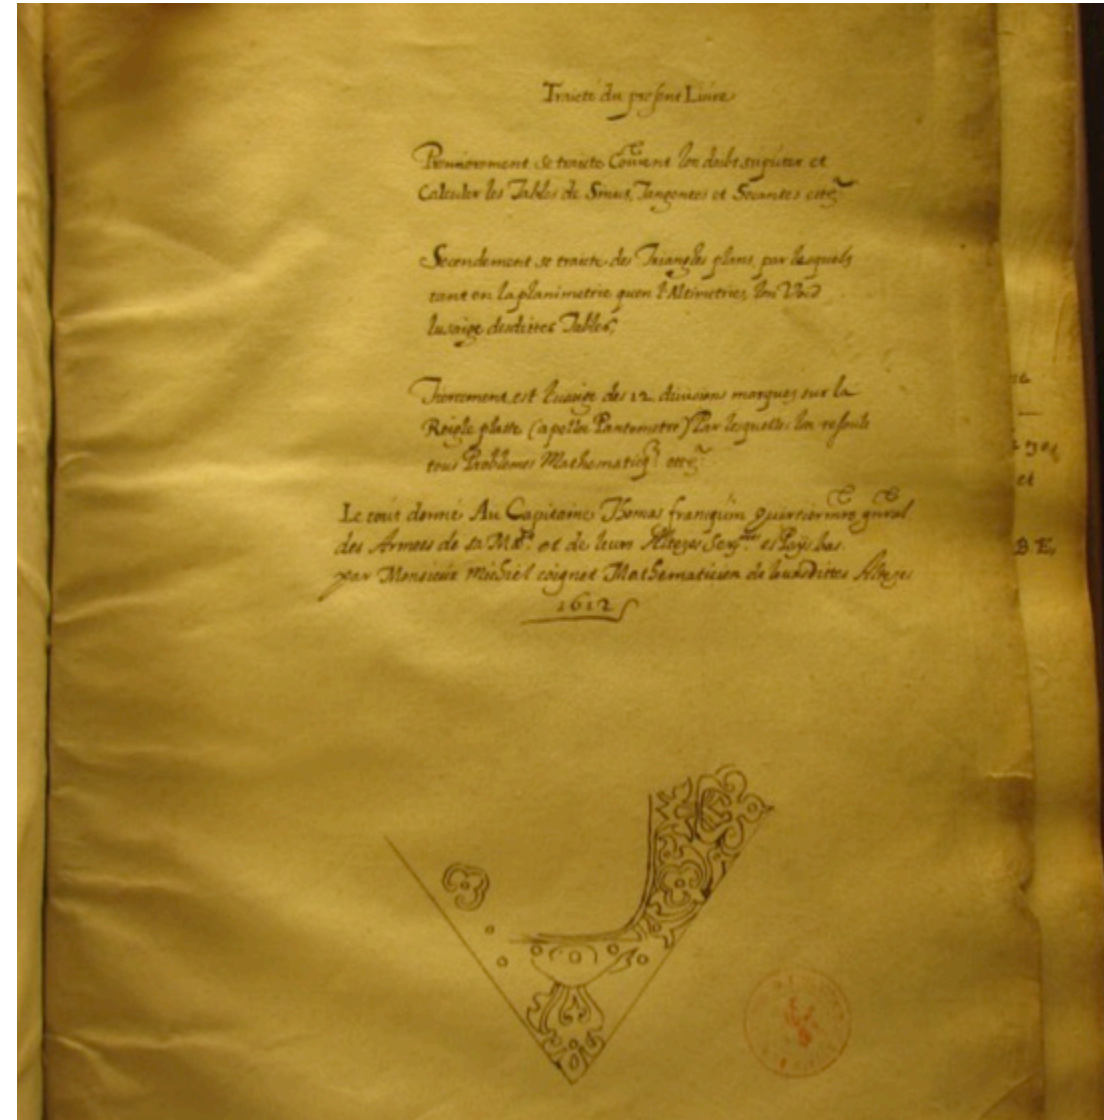 Traicté du present Livre
Premierement se traicte Coment lon doibt suputer et
Calculer les Tables de Sinus, Tangentes et Secantes etc
Secondement se traicte des Triangles plans, par lesquels
tant en la planimetrie quen l'Altimetrie, lon Void
lusaige desdittes Tables,
Tiercement est lusaige des 12 divisions marques sur la
Reigle platte (apellée Pantometre) Par lesquelles lon resoult
tous Problemes Mathematiq etc
Le tout donné Au Capitaine Thomas franiquin gnral
des Armees de sa Ma et de leurs Altezes Ser es Pays bas
par Monsieur Michiel coignet Mathematicien de leursdittes Altezes
1612
et
B.E.